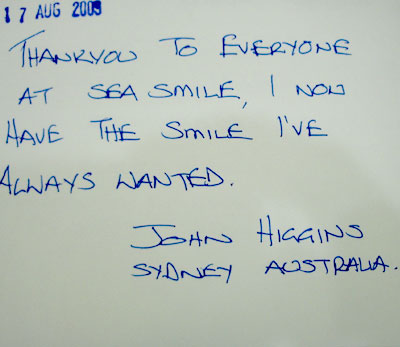 17 AUG 2009
THANKYOU TO EVERYONE
AT SEA SMILE, I NOW
HAVE THE SMILE I'VE
ALWAYS WANTED.
JOHN HIGGINS
SYDNEY AUSTRALIA.